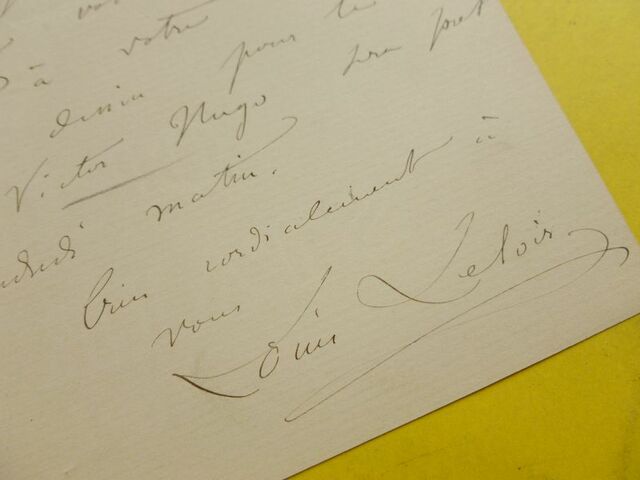 à votre
dessin pour le
Victor Hugo sera prêt
matin.
bien cordialement à
vous
Louis Leloir